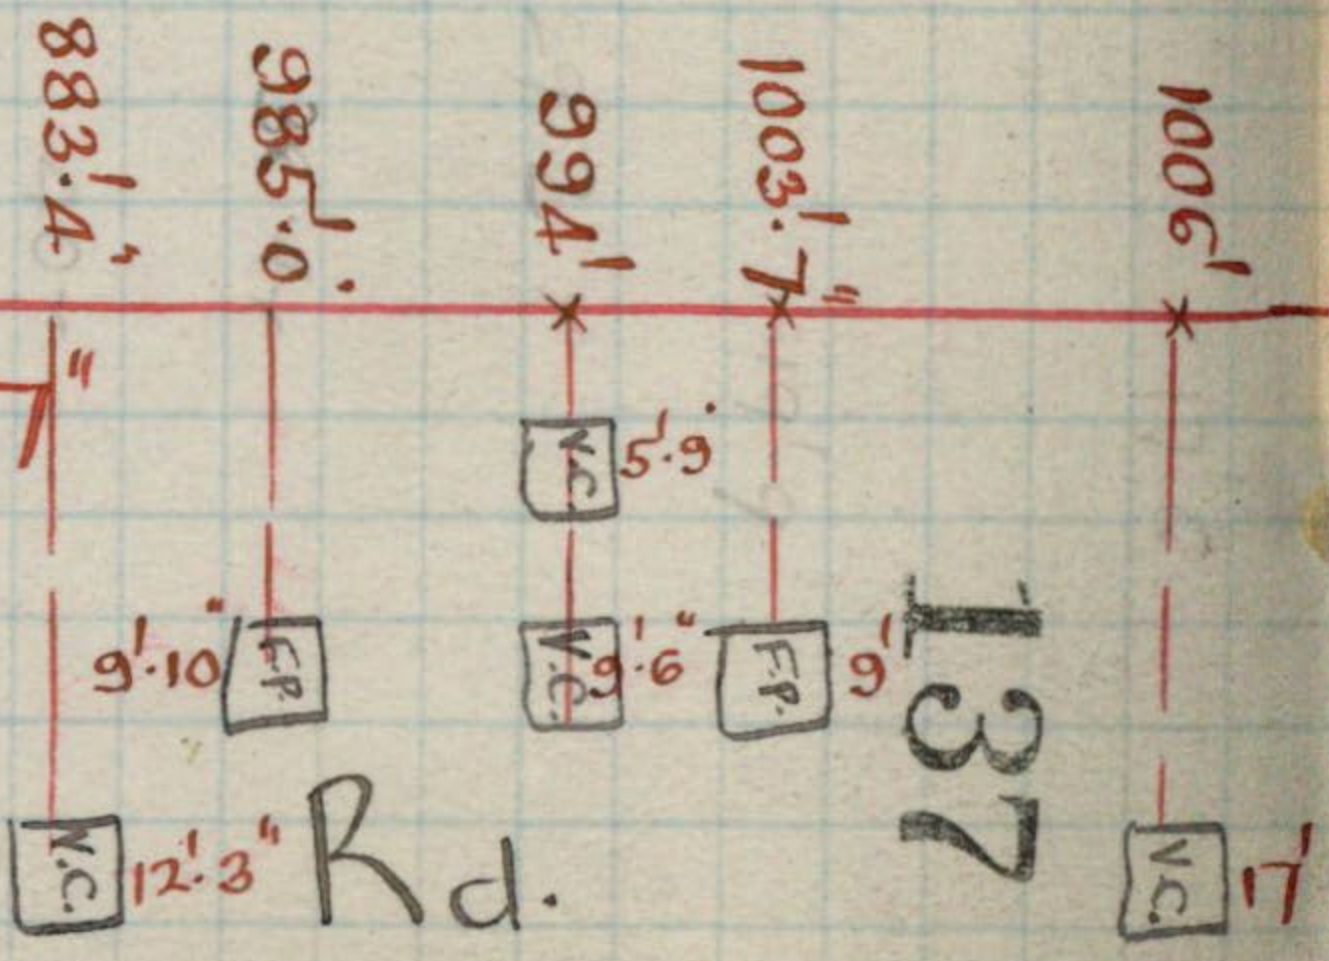 883'.4"
985'.0"
994'
1003'.7"
1006'
7"
V.C. 5'.9"
9'.10" F.P.
V.C. 9'.6"
F.P. 9'
137
V.C. 12'.3"
Rd.
V.C. 17'